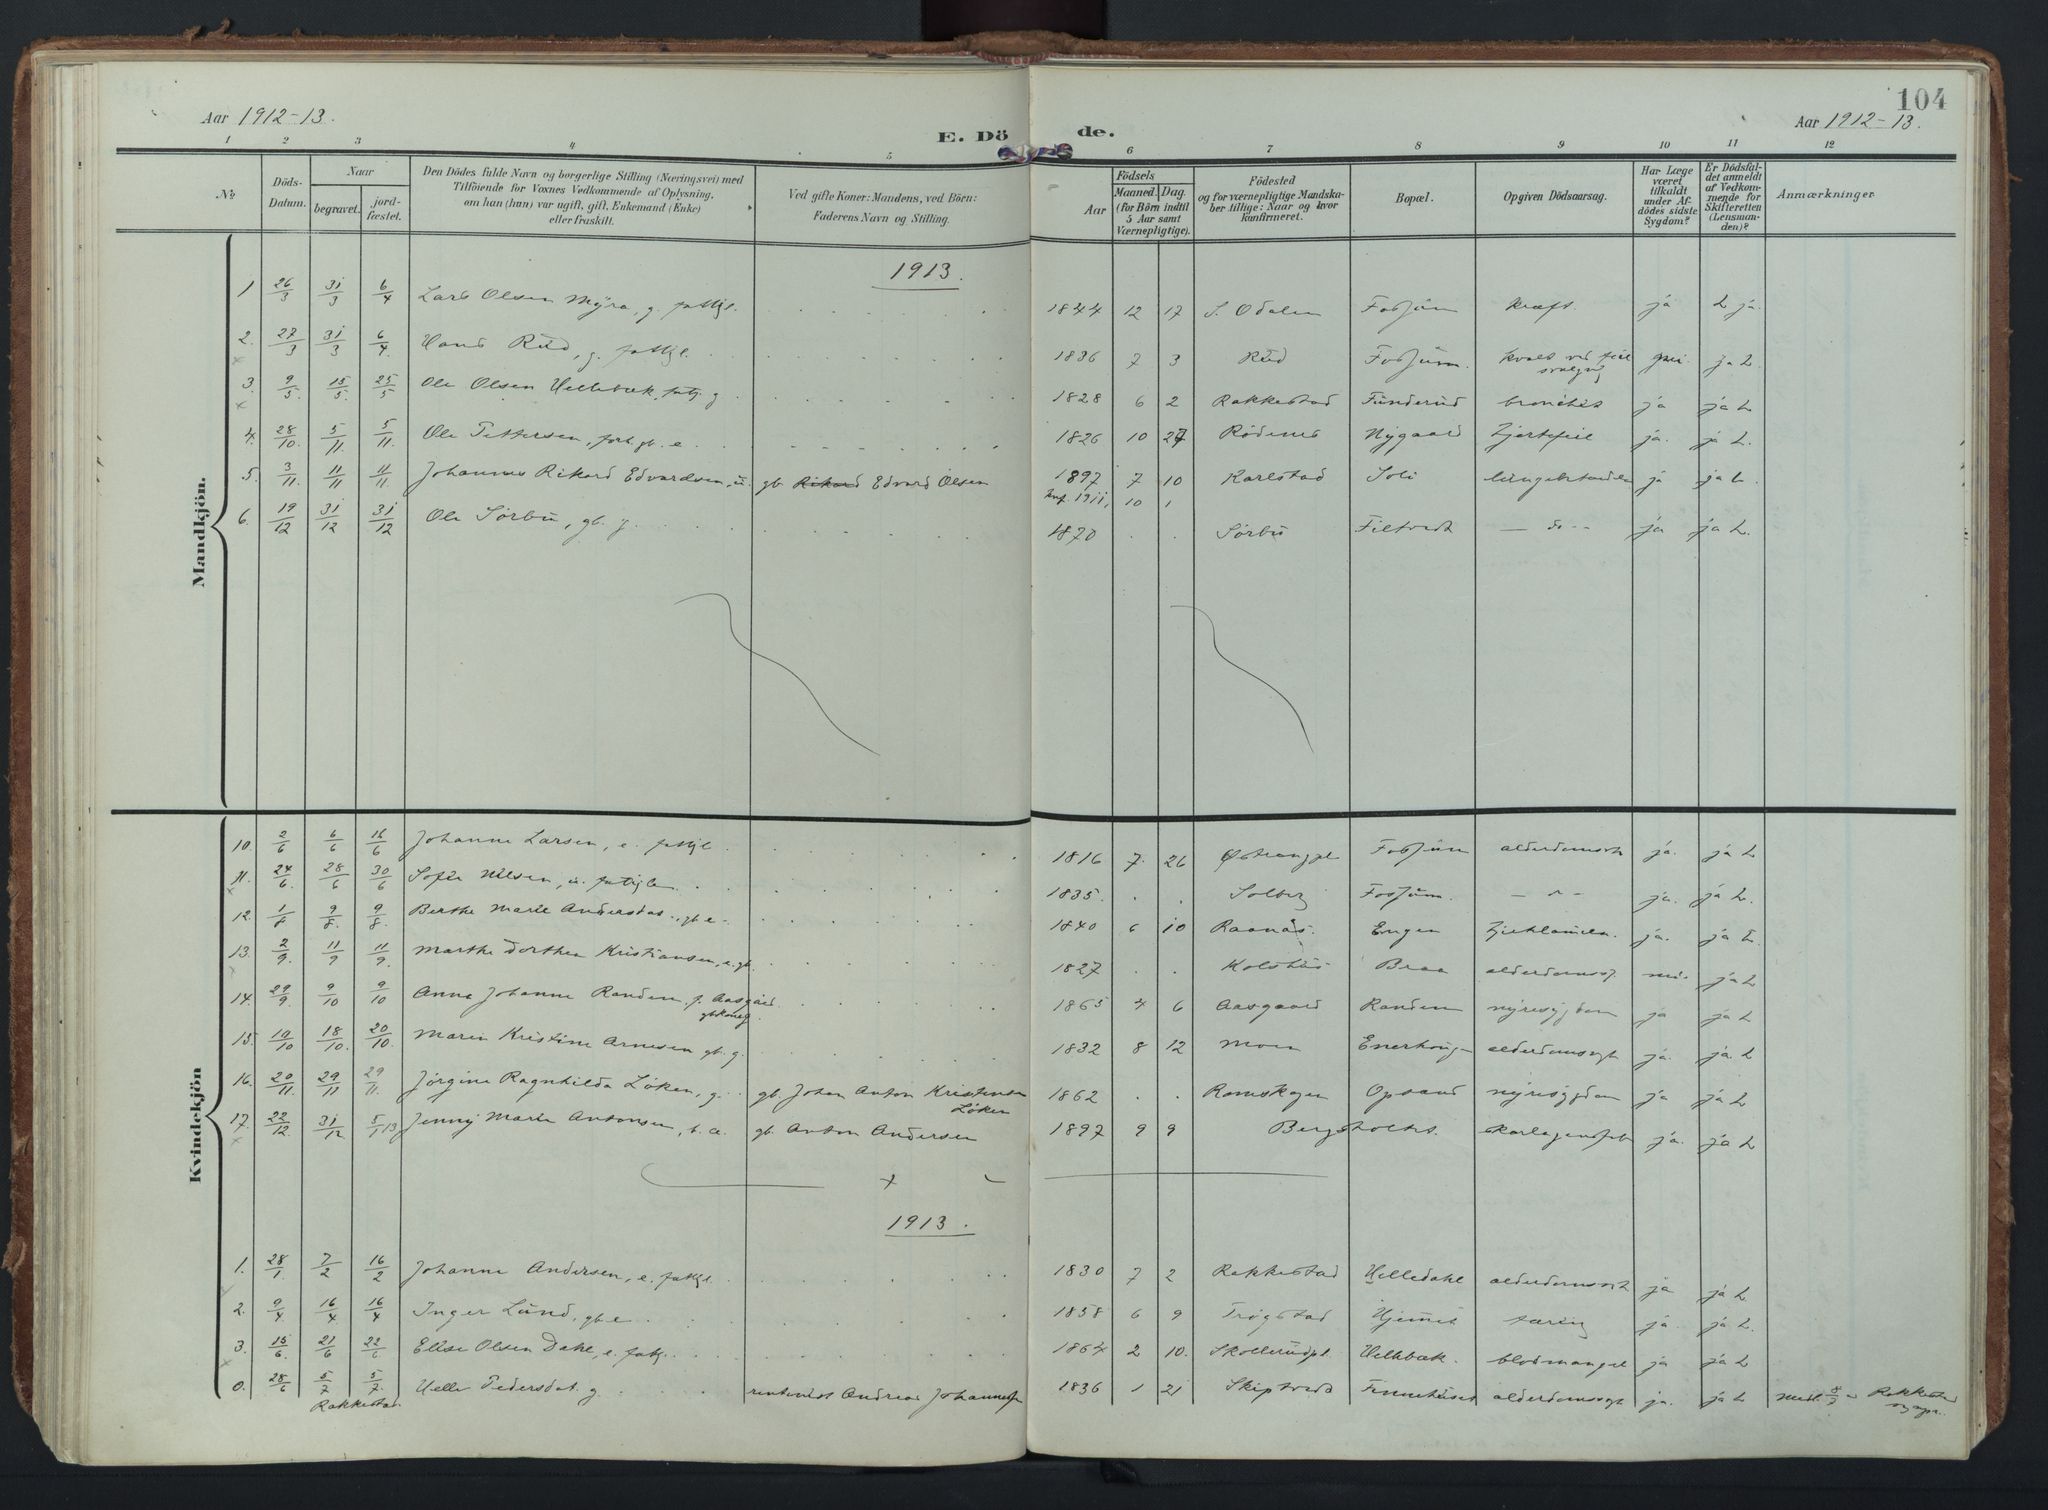 104
Aar 1912-13. E. Dö de. Aar 1912-13.
1 2 3 4 5 6 7 8 9 10 11 12
No. Döds-Datum. Naar begravet. jordfæstet. Den Dödes fulde Navn og borgerlige Stilling (Næringsvei) med Tilföiende for Voxnes Vedkommende af Oplysning, om han (hun) var ugift, gift, Enkemand (Enke) eller fraskilt. Ved gifte Koner: Mandens, ved Börn: Faderens Navn og Stilling. Aar Födsels Maaned. Dag. (for Börn indtil 5 Aar samt Værnepligtige). Födested og for værnepligtige Mandskaber tillige: Naar og hvor konfirmeret. Bopæl. Opgiven Dödsaarsag. Har Læge været tilkaldt under Afdödes sidste Sygdom? Er Dödsfaldet anmeldt af Vedkommende for Skifteretten (Lensmanden)? Anmærkninger
Mandkjön.
1913.
1 26/3 31/3 6/4 Lars Olsen Myra, g. fattigl. 1844 12 17 S. Odalen Fosjum kræft. ja L ja.
2. 27/3 31/3 6/4 Hans Rud, g. fattigl. 1836 7 3 Rud Fosjum. kvalt ved feil ja L.
3. 9/5 15/5 25/5 Ole Olsen Hellebæk, g 1828 6 2 Rakkestad Funderud bronchit ja ja L
4. 28/10 5/11 5/11 Ole Pettersen, gb. e. 1826 10 27 Rødenes Nygaard hjertefeil ja. ja L.
5. 3/11 11/11 11/11 Johannes Rikard Edvardsen, u. gb. Rikard Edvard Olsen 1897 7 10 Karlstad Soli ja ja L
konf. 1911, 10 1
6. 19/12 31/12 31/12 Ole Sørbu, gb. g. 1870 Sørbu Filtvedt — do -- ja ja L.
Kvindekjön
10. 2/6 6/6 16/6 Johanne Larsen, e. fattigl. 1816 7. 26 Fosjum alderdomssv ja. ja L
11. 24/6 28/6 30/6 Sofie Nilsen, u. 1835. Solberg Fosjum. — " - ja. ja L.
12. 1/8 9/8. 9/8. Berthe Marie Andersdat., gb e. 1840 6 10 Raanas. Engen ja. ja L.
13. 2/9. 11/9 11/9. Marthe Dorthea Kristiansen, e. gb. 1827 Kolshus Braa alderdomss. nei. ja L
14. 29/9. 9/10 9/10 Anna Johanne Randem f. Aasgård gbkone g. 1865 4 6 Aasgaard Randem nyresygdom ja ja L
15. 10/10 18/10. 20/10. Maren Kristine Arnesen gb. g. 1832 8 12 Moen Enerhoug alderdomssygt ja. ja. L
16. 20/11. 29/11 29/11. Jørgine Ragnhilda Løken, g. gb. Johan Anton Kristensen Løken 1862 Romskogen Opsand nyresygdom ja ja L
17. 22/12. 31/12 5/1 13 Jenny Marie Antonsen, gb. Anton Andersen 1897 9 9 Bergsholtet. skarlagensfeb ja. ja L
1913.
1. 28/1. 7/2 16/2 Johanne Andersen, e. fattigl. 1830 7 2 Rakkestad Helledahl alderdomssvt ja ja L
2. 9/4 16/4 16/4 Inger Lund, gb e 1858 6 9 Trøgstad tæring ja. ja L.
3. 15/6. 21/6 22/6 Elise Olsen Dahl, e. 1864 2 10. Skollerudpl. Hellebæk. blodmangel ja ja L
0. 28/6 5/7 5/7. Helle Pedersdat. g. Andreas Johannesen 1836 1 21 Skiptvedt alderdomssygt ja. ja L
Rakkestad.